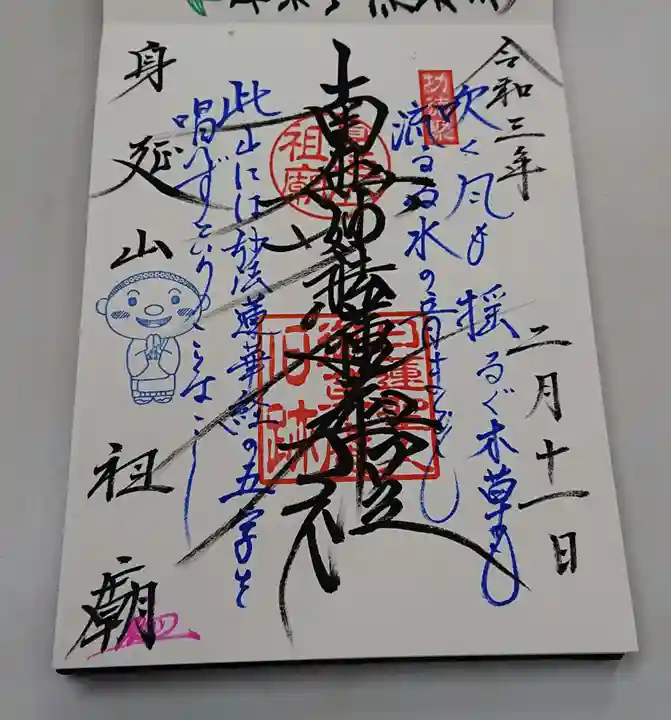 令和三年
二月十一日
吹く風も 揺るぐ木草も
流るる水の音までも
南無妙法蓮華経
此山には妙法蓮華経の五字を
唱へずといふことなし
身延山
祖廟
祖廟
旧跡